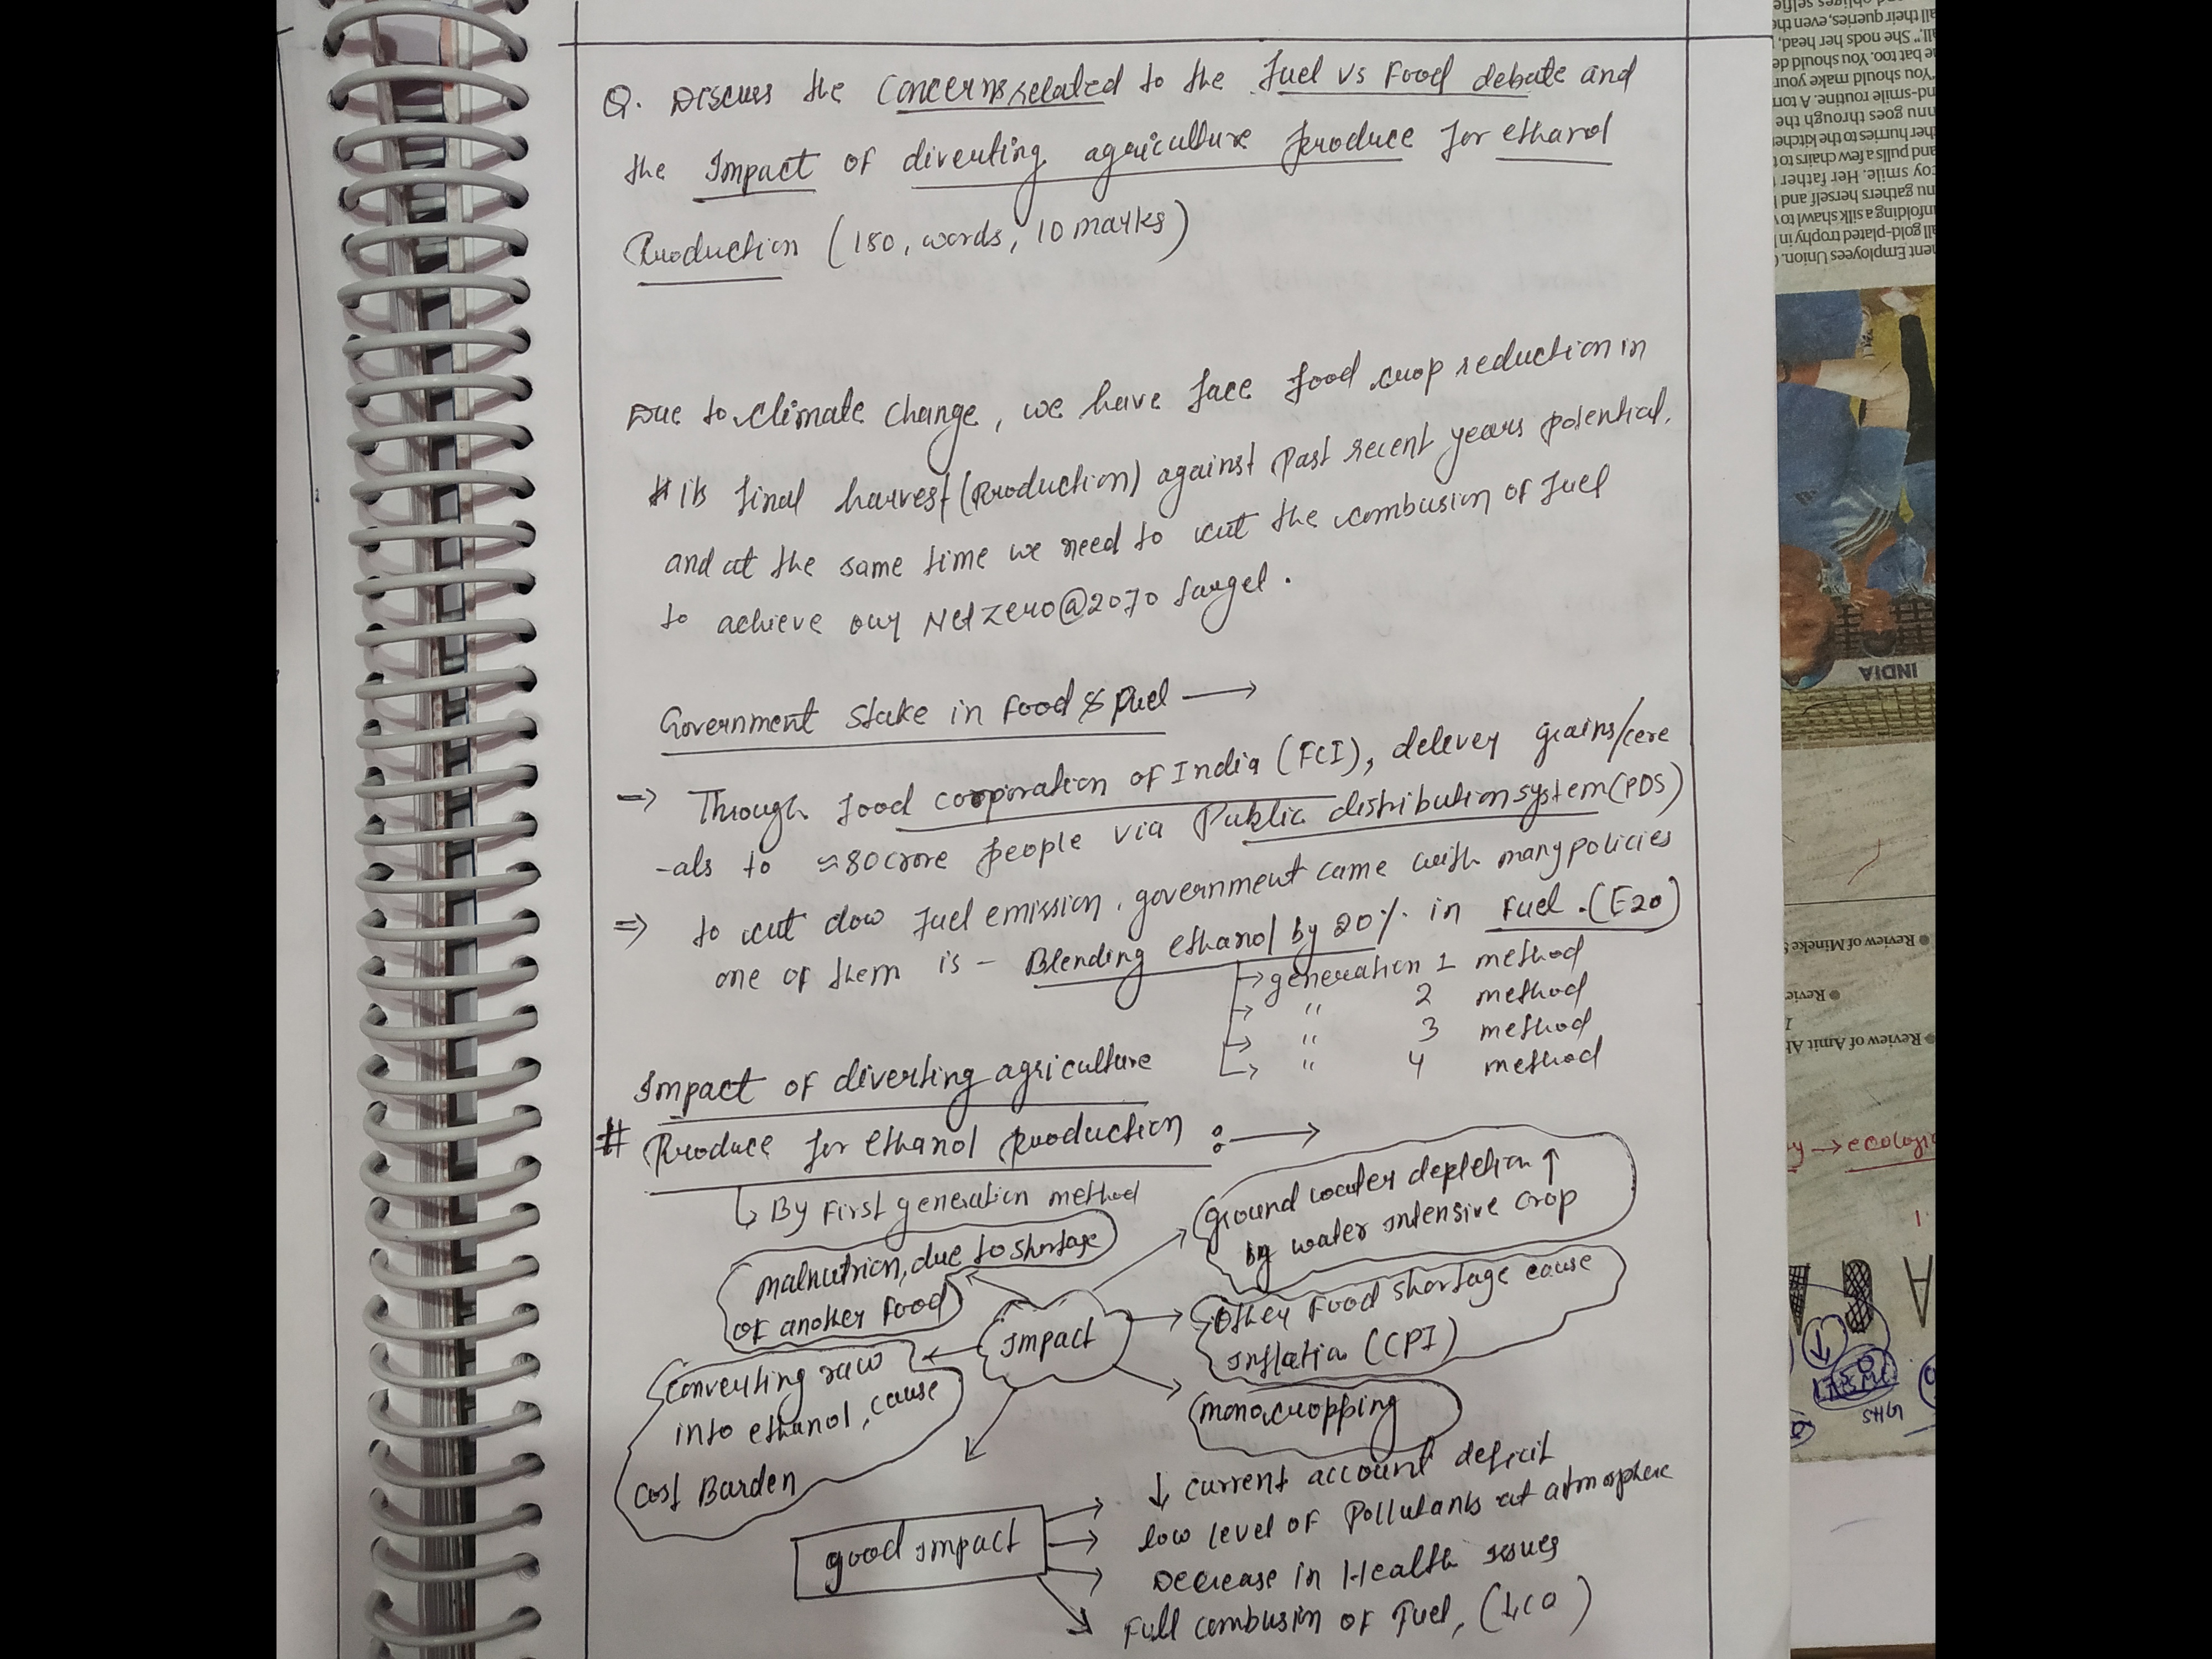 Q. Discuss the concerns related to the fuel vs food debate and
the Impact of diverting agriculture produce for ethanol
Production (150, words, 10 marks)
Due to climate change, we have face food crop reduction in
# its final harvest (Production) against past recent years potential.
and at the same time we need to cut the combusion of fuel
to achieve our Net Zero@2070 target.
Government stake in food & fuel →
=> Through food corporation of India (FCI), delivey grains/cere
-als to ≈80crore people via Public distribution system (PDS)
=> to cut dow fuel emission, government came with many policies
one of them is - Blending ethanol by 20% in fuel. (E20)
→ generation 1 method
→ " 2 method
→ " 3 method
→ " 4 method
Impact of diverting agriculture
# Produce for ethanol production : →
↳ By First generation method
Ground water depletion ↑
by water intensive crop
malnutrion, due to shortage
of another food
Impact
Other Food shortage cause
Inflation (CPI)
Converting raw
into ethanol, cause
cost Burden
monocropping
good impact
→ ↓ current account deficit
→ low level of Pollutants at atmosphere
→ Decrease in Health issues
→ Full combusion of Fuel, (↓CO)
all their queries, even the
all." She nods her head,
e bat too. You should de
You should make your
nd-smile routine. A tor
nnu goes through the
ther hurries to the kitche
and pulls a few chairs to
coy smile. Her father
nu gathers herself and
nfolding a silk shawl to
all gold-plated trophy in
ment Employees Union.
INDIA
● Review of Mineke
● Revie
● Review of Amit A
→ ecologi
SHG